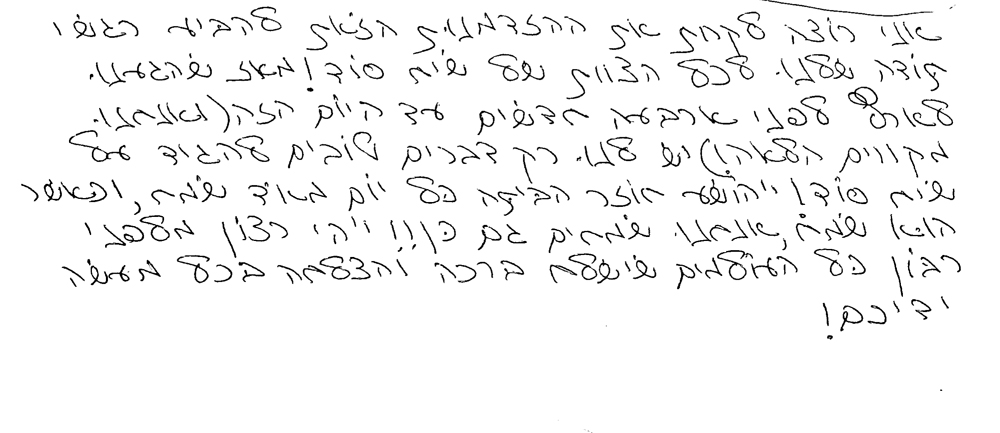 אני רוצה לקחת את ההזדמנות הזאת להביע רגשי
תודה שלנו. לכל הצוות של שיח סוד! מאז שהגענו.
לארץ לפני ארבעה חדשים עד היום הזה (ואנחנו.
מקווים הלאה!) יש לנו. רק דברים טובים להגיד על
שיח סוד! יהושע חוזר הביתה כל יום מאוד שמח, וכאשר
הוא שמח, אנחנו. שמחים גם כן!! ויהי רצון מלפני
רבון כל העולמים שישלח ברכה והצלחה בכל מעשה
ידיכם!